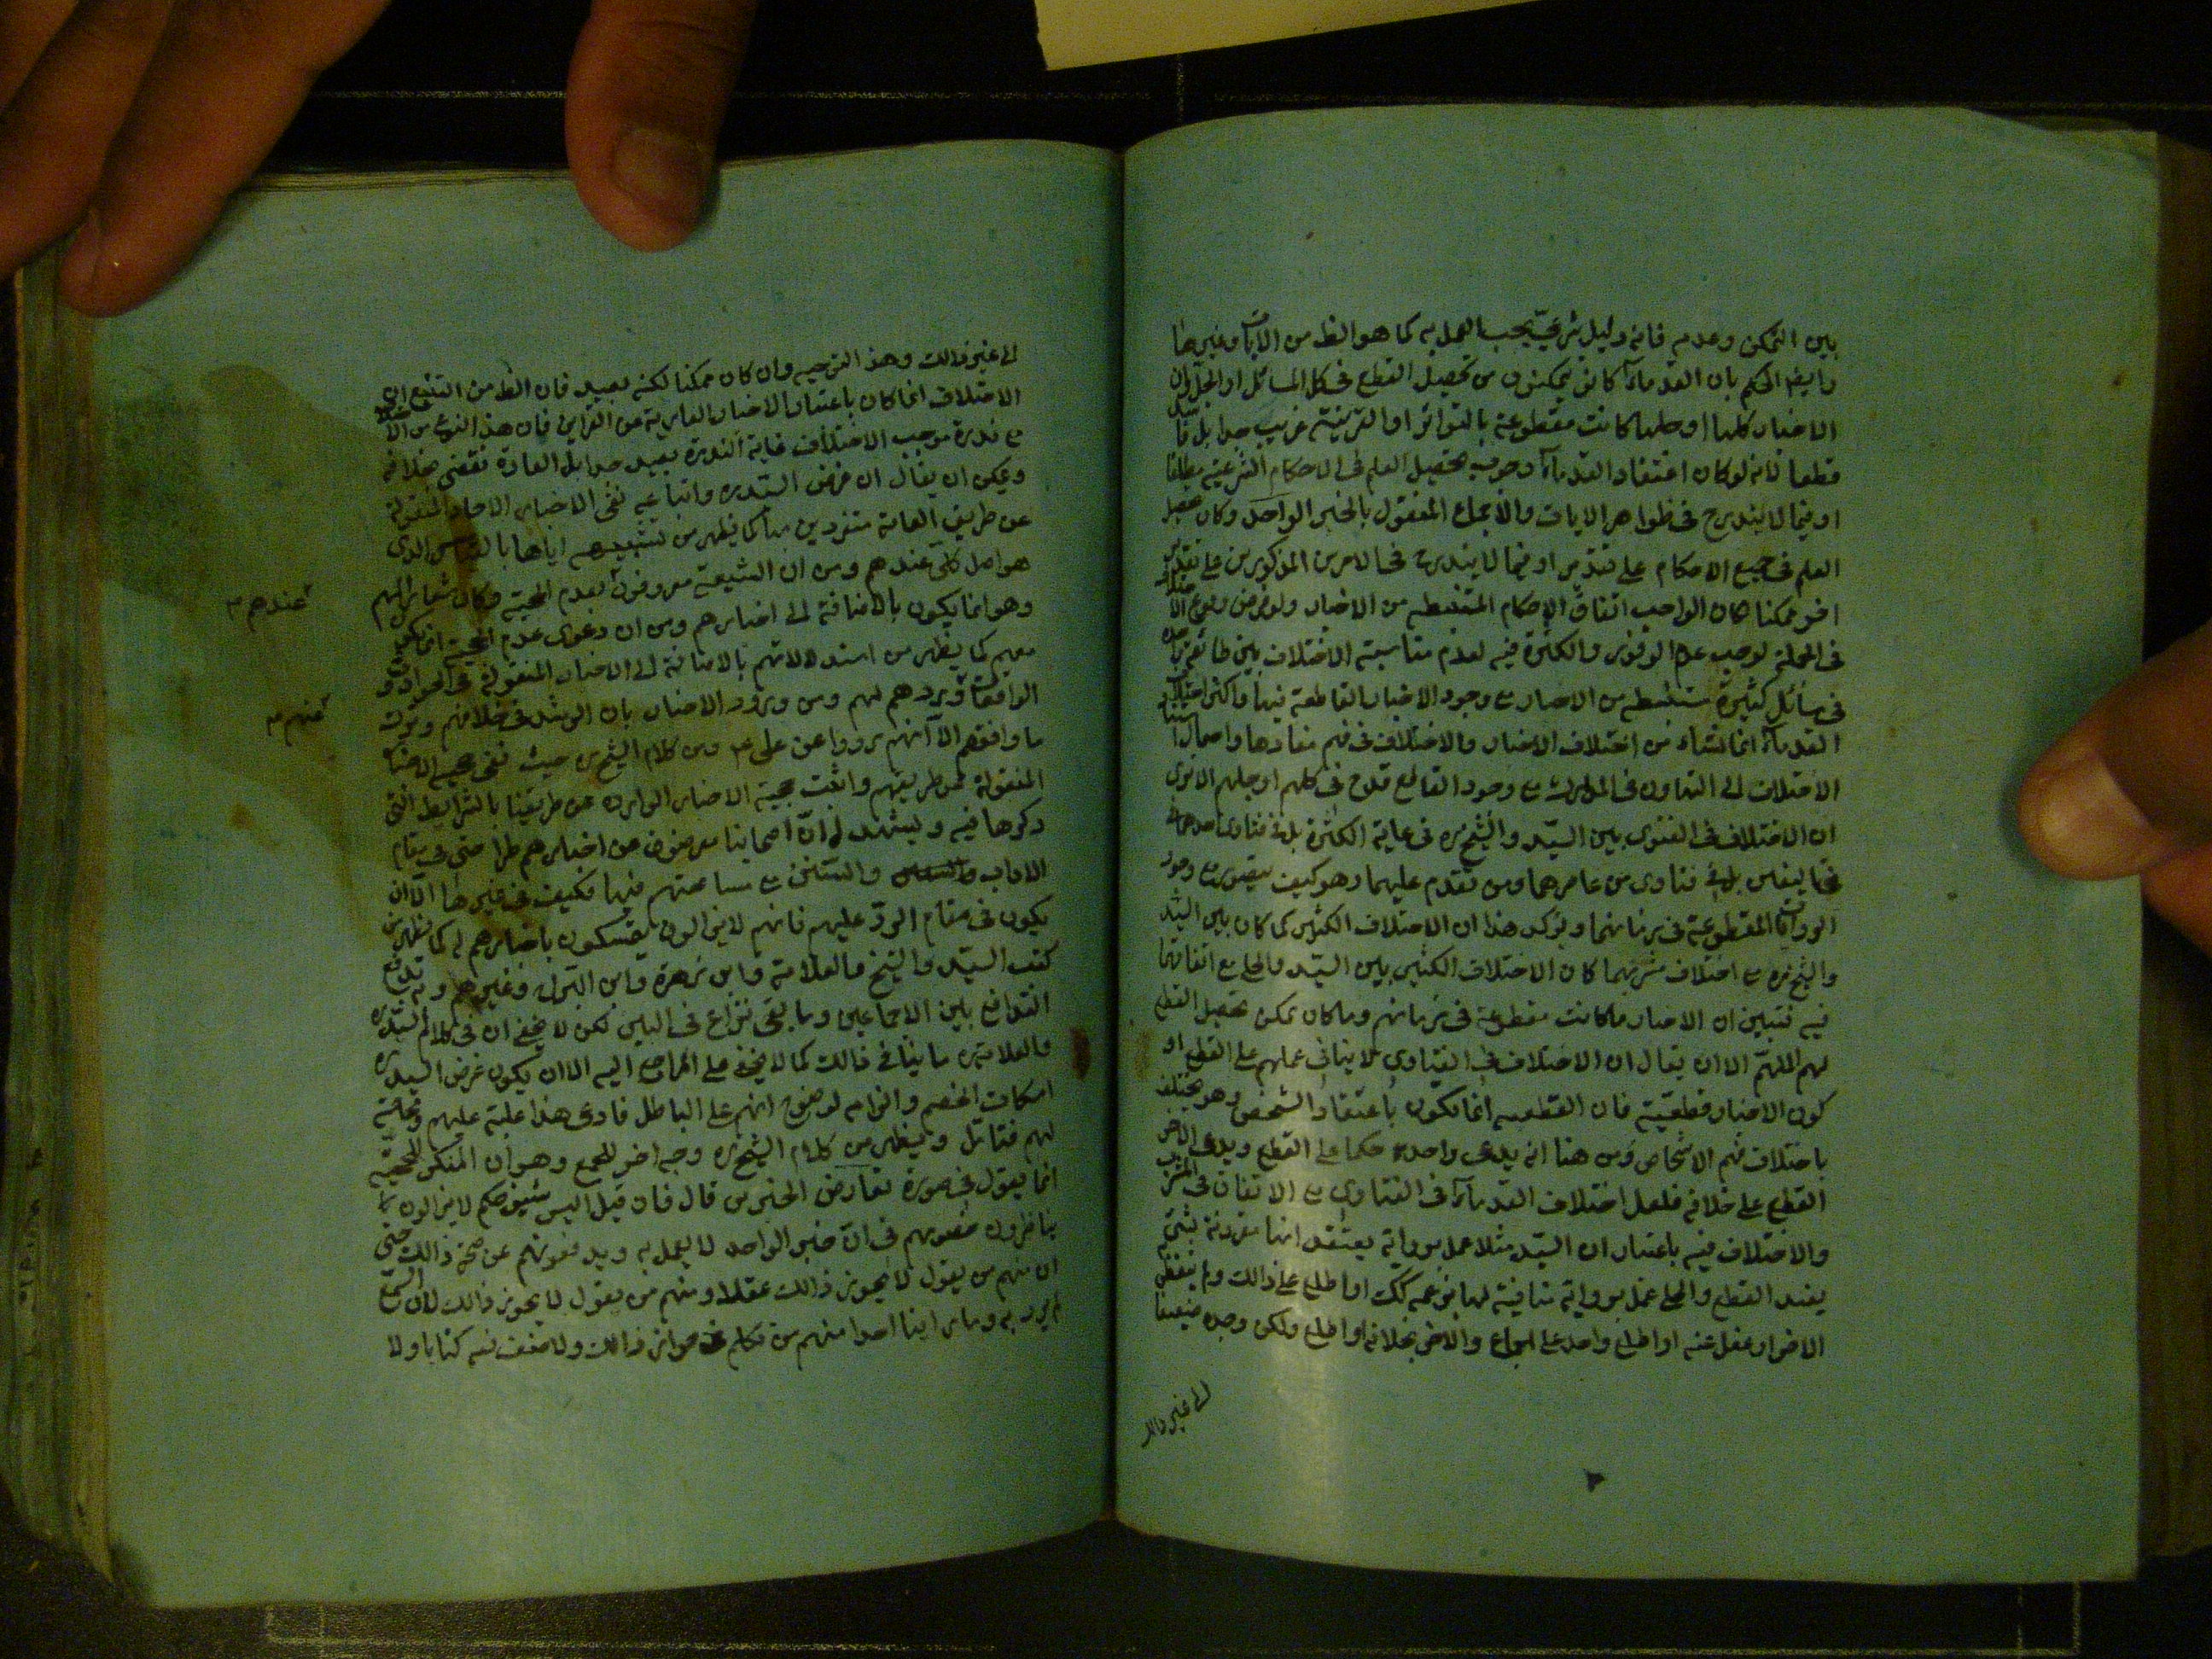 بين التمكن وعدمه فانه دليل شرعي يجب العمل به كما هو الظ من الايات وغيرها
وايضا الحكم بان القدماء كانوا يتمكنون من تحصيل القطع في كل المسائل او الجل وان
الاخبار كلها او جلها كانت مقطوعة بالتواتر او القرينة غريب جدا بل فاسد
قطعا لانه لو كان اعتقاد القدماء وجوب تحصيل العلم في الاحكام الشرعية مطلقا
او فيما لا يندرج في ظواهر الايات والاجماع المنقول بالخبر الواحد وكان تحصيل
العلم في جميع الاحكام على تقدير او فيما لا يندرج في الامرين المذكورين على تقدير
اخر ممكنا لكان الواجب اتفاق الاحكام المستنبطة من الاخبار ولو فرض وقوع الاختلاف
في الجملة لوجب عدم الوفور والكثرة فيه لعدم مناسبة الاختلاف بين طائفة
في مسائل كثيرة مستنبطة من الاخبار مع وجود الاخبار القاطعة فيها واكثر اختلاف
القدماء انما نشاء من اختلاف الاخبار والاختلاف في فهم مفادها واحتمال استناد
الاختلاف الى التهاون في المدارك مع وجود القاطع قدح في كلهم او جلهم الا ترى
ان الاختلاف في الفتوى بين السيد والشيخ ره في غاية الكثرة بل في فتاوى احدهما
بل في فتاوى من عاصرهما ومن تقدم عليهما وهو كيف يتصور مع وجود
الروايات المقطوعة في زمانهما ويؤكد هذا ان الاختلاف الكثير كما كان بين السيد
والشيخ ره مع اختلاف مشربهما كان الاختلاف الكثير بين السيد والحلي مع اتفاقهما
فيه فتبين ان الاخبار ما كانت مقطوعة في زمانهم وما كان يمكن تحصيل القطع
لهم اللهم الا ان يقال ان الاختلاف في الفتاوى لا ينافي عملهم على القطع او
كون الاخبار قطعية فان القطعية انما تكون باعتقاد الشخص وهو يختلف
باختلاف فهم الاشخاص ومن هنا انه يدعى واحد حكما على القطع ويدعى الاخر
القطع على خلافه فلعل اختلاف القدماء في الفتاوى مع الاتفاق في المشرب
والاختلاف فيه باعتبار ان السيد مثلا عمل برواية يعتقد انها مقرونة بشئ
يفيد القطع والحلي عمل برواية منافية لها بزعمه كك او اطلع على ذالك ولم يتفطن
الاخر او غفل عنه او اطلع واحد على اجماع والاخر بخلافه او اطلع ولكن وجده ضعيفا
الى غير ذالك
الى غير ذالك وهذا التوجيه وان كان ممكنا لكنه بعيد فان الظ من التتبع ان
الاختلاف انما كان باعتبار الاخبار العارية عن القراين فان هذا النوع من الاختلاف
مع ندرة موجب الاختلاف غاية الندرة بعيد جدا بل العادة تقضي بخلافه
ويمكن ان يقال ان غرض السيد ره واتباعه نفى الاخبار الاحاد المنقولة
عن طريق العامة متفردين بها كما يظهر من تشبيهه اياها بالقياس الذي
هو اصل كلى عندهم ومن ان الشيعة معروفون بعدم الحجية وكان شعائر لهم
عندهم
وهو انما يكون بالاضافة الى اخبارهم ومن ان دعوى عدم الحجية انما يكون
معهم كما يظهر من استدلالاتهم بالاضافة الى الاخبار المنقولة في الحوادث و
الواقعات وردهم لهم ومن ورود الاخبار بان الرشد في خلافهم وترك
منهم
ما وافقهم الا انهم رووا عن على ع ومن كلام الشيخ ره حيث نفى حجية الاخبار
المنقولة من طريقهم واثبت حجية الاخبار الواردة عن طريقنا بالشرايط التي
ذكرها فيه ويشهد له ان اصحابنا معرضون عن اخبارهم طرا حتى في مقام
الاداب والسنن مع مسامحتهم فيها فكيف في غيرها الا ان
يكون في مقام الرد عليهم فانهم لايزالون يتمسكون باخبارهم له كما يظهر من
كتب السيد والشيخ والعلامة وابن زهرة وابن البراج وغيرهم وبه يندفع
التدافع بين الاجماعين وما بقى نزاع في البين لكن لا يخفى ان في كلام السيد ره
والعلامة ره ما ينافي ذالك كما لا يخفى على المراجع اليه الا ان يكون غرض السيد ره
اسكات الخصم والزامه لوضوح انهم على الباطل فادعى هذا غلبة عليهم
لهم فتأمل ويظهر من كلام الشيخ ره وجه اخر للجمع وهو ان المنكر للحجية
انما يقول في صورة تعارض الخبرين قال فان قيل اليس شيوخكم لايزالون
يناظرون خصومهم في ان خبر الواحد لا يعمل به ويدفعونهم عن صحة ذالك حتى
ان منهم من يقول لا يجوز ذالك عقلا ومنهم من يقول لا يجوز ذالك لان السمع
لم يرد به وما راينا احدا منهم من تكلم في جواز ذالك ولا صنف فيه كتابا ولا